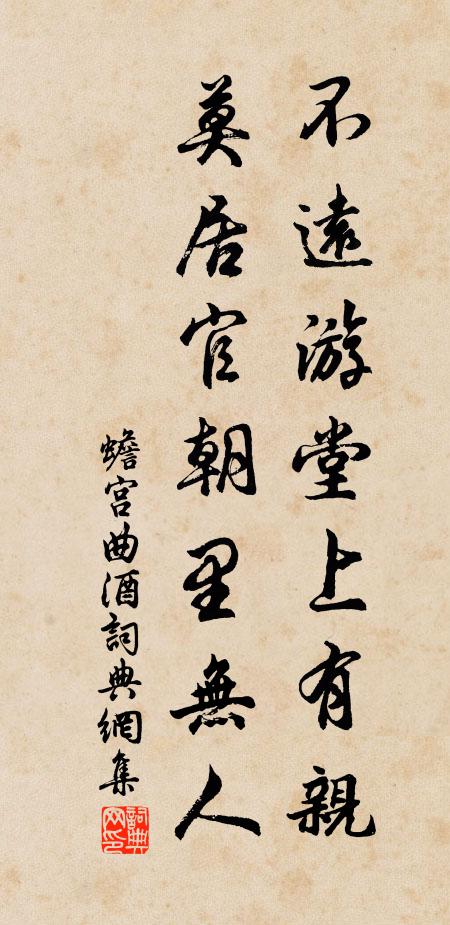 不遠游堂上有親
莫居官朝里無人
蟾宮曲酒詞典網集
詞典網印